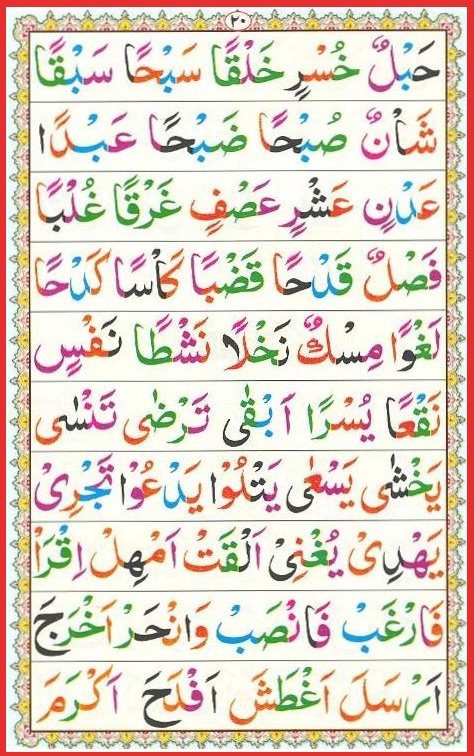 ۲۰
حَبْلٌ خُسْرٍ خَلْقًا سَبْحًا سَبْقًا
شَأْنٌ صُبْحًا ضَبْحًا عَبْدًا
عَدْنٍ عَشْرٍ عَصْفٍ غَرْقًا غُلْبًا
فَصْلٌ قَدْحًا قَضْبًا كَأْسًا كَدْحًا
لَغْوًا مِسْكٌ نَخْلًا نَشْطًا نَفْسٍ
نَقْعًا يُسْرًا اَبْقٰى تَرْضٰى تَنْسٰى
يَخْشٰى يَسْعٰى يَتْلُوْا يَدْعُوْا تَجْرِىْ
يَهْدِىْ يُغْنِىْ اَلْقَتْ اَمْهِلْ اِقْرَاْ
فَارْغَبْ فَانْصَبْ وَانْحَرْ اَخْرَجَ
اَرْسَلَ اَغْطَشَ اَفْلَحَ اَكْرَمَ